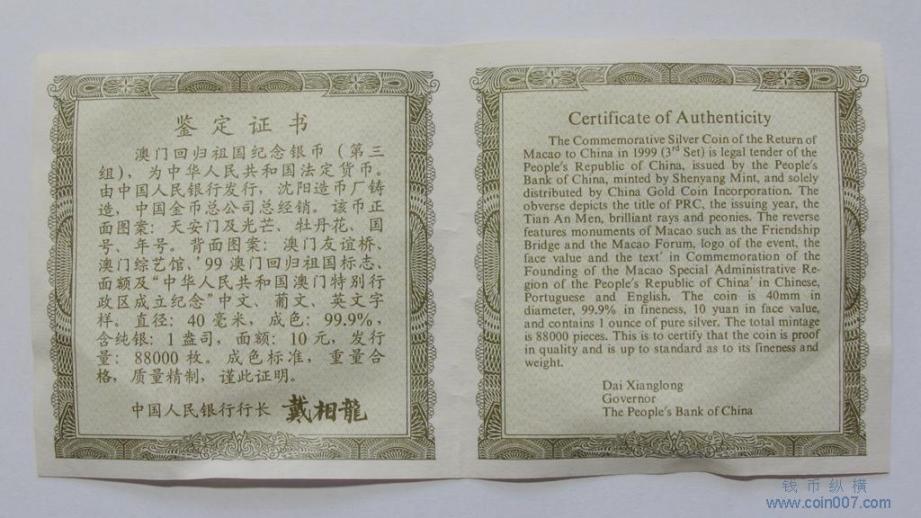 鉴定证书
澳门回归祖国纪念银币（第三
组），为中华人民共和国法定货币。
由中国人民银行发行，沈阳造币厂铸
造，中国金币总公司总经销。该币正
面图案：天安门及光芒、牡丹花、国
号、年号。背面图案：澳门友谊桥、
澳门综艺馆、’99澳门回归祖国标志、
面额及“中华人民共和国澳门特别行
政区成立纪念”中文、葡文、英文字
样。直径：40毫米，成色：99.9%，
含纯银：1盎司，面额：10元，发行
量：88000枚。成色标准，重量合
格，质量精制，谨此证明。
中国人民银行行长 戴相龍
Certificate of Authenticity
The Commemorative Silver Coin of the Return of
Macao to China in 1999 (3rd Set) is legal tender of the
People's Republic of China, issued by the People's
Bank of China, minted by Shenyang Mint, and solely
distributed by China Gold Coin Incorporation. The
obverse depicts the title of PRC, the issuing year, the
Tian An Men, brilliant rays and peonies. The reverse
features monuments of Macao such as the Friendship
Bridge and the Macao Forum, logo of the event, the
face value and the text' in Commemoration of the
Founding of the Macao Special Administrative Re-
gion of the People's Republic of China' in Chinese,
Portuguese and English. The coin is 40mm in
diameter, 99.9% in fineness, 10 yuan in face value,
and contains 1 ounce of pure silver. The total mintage
is 88000 pieces. This is to certify that the coin is proof
in quality and is up to standard as to its fineness and
weight.
Dai Xianglong
Governor
The People's Bank of China
钱币纵横
www.coin007.com